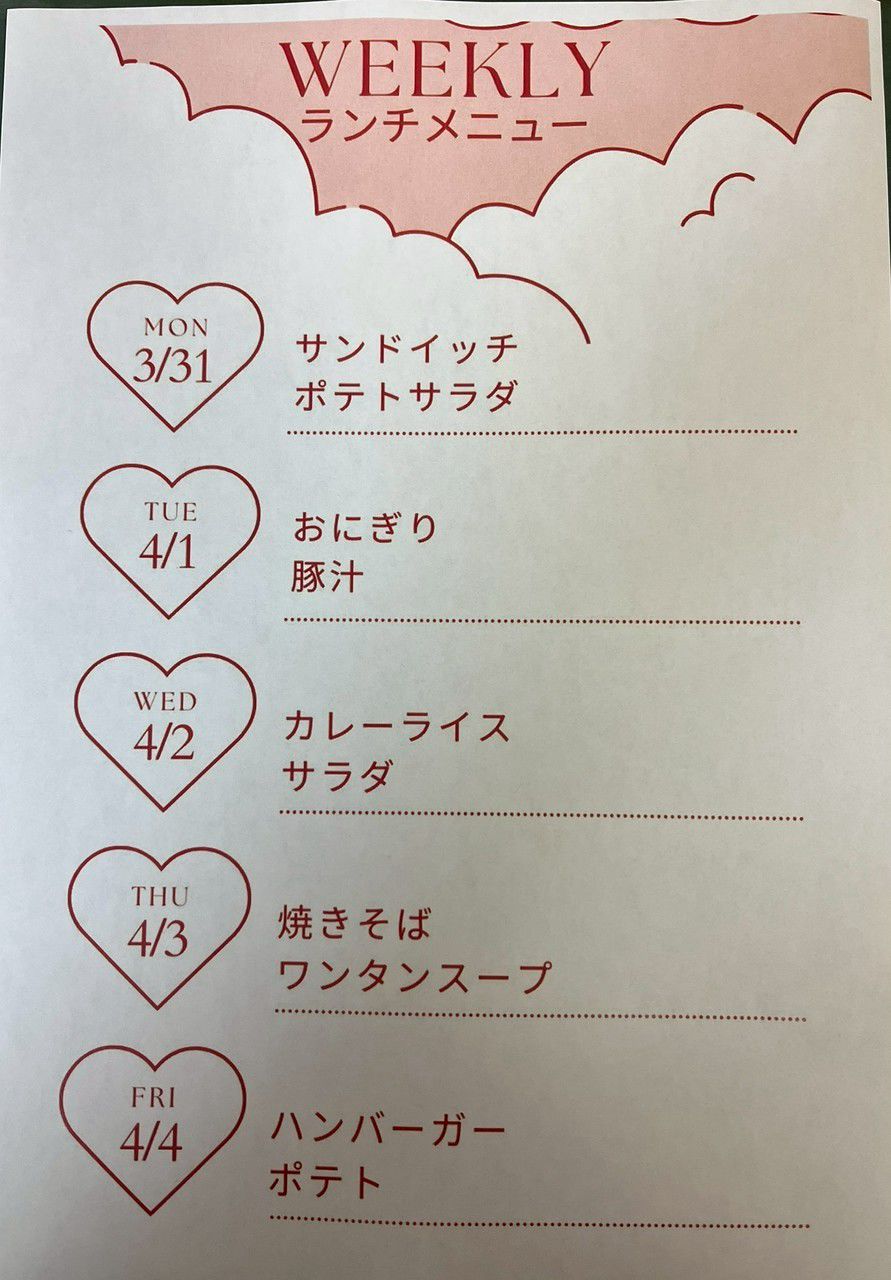 WEEKLY
ランチメニュー
MON
3/31
サンドイッチ
ポテトサラダ
TUE
4/1
おにぎり
豚汁
WED
4/2
カレーライス
サラダ
THU
4/3
焼きそば
ワンタンスープ
FRI
4/4
ハンバーガー
ポテト